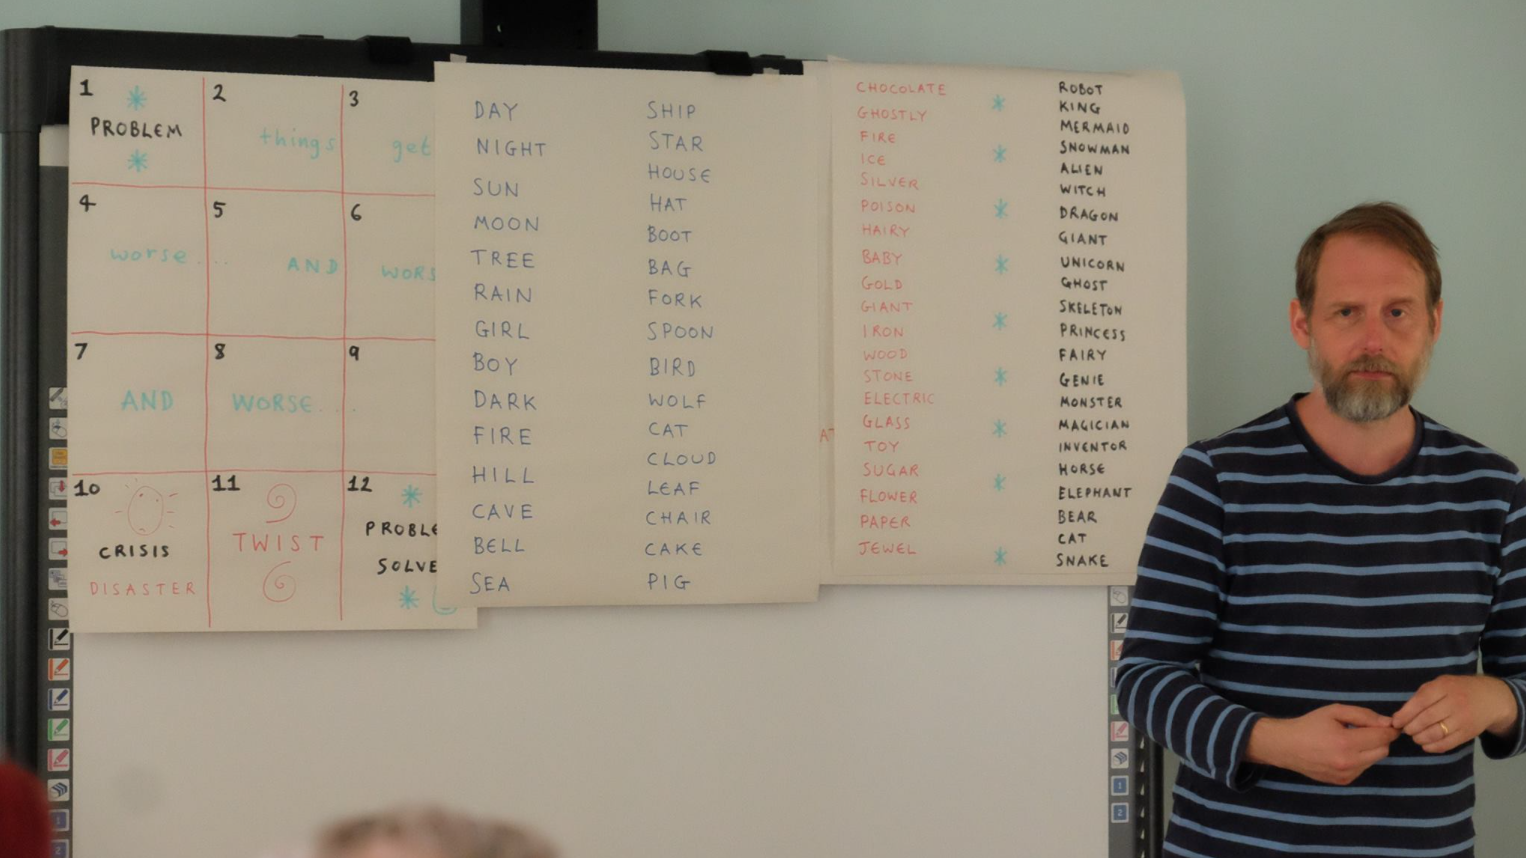 1
PROBLEM
2
things
3
get
4
worse....
5
AND
6
WORS
7
AND
8
WORSE....
9
10
CRISIS
DISASTER
11
TWIST
12
PROBLE
SOLVE
DAY
NIGHT
SUN
MOON
TREE
RAIN
GIRL
BOY
DARK
FIRE
HILL
CAVE
BELL
SEA
SHIP
STAR
HOUSE
HAT
BOOT
BAG
FORK
SPOON
BIRD
WOLF
CAT
CLOUD
LEAF
CHAIR
CAKE
PIG
CHOCOLATE
GHOSTLY
FIRE
ICE
SILVER
POISON
HAIRY
BABY
GOLD
GIANT
IRON
WOOD
STONE
ELECTRIC
GLASS
TOY
SUGAR
FLOWER
PAPER
JEWEL
ROBOT
KING
MERMAID
SNOWMAN
ALIEN
WITCH
DRAGON
GIANT
UNICORN
GHOST
SKELETON
PRINCESS
FAIRY
GENIE
MONSTER
MAGICIAN
INVENTOR
HORSE
ELEPHANT
BEAR
CAT
SNAKE
1
2
1
2